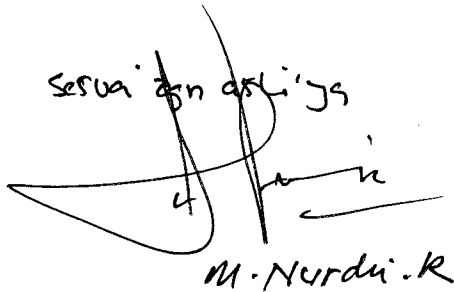 sesuai dgn asli'ya
M. Nurdin. K